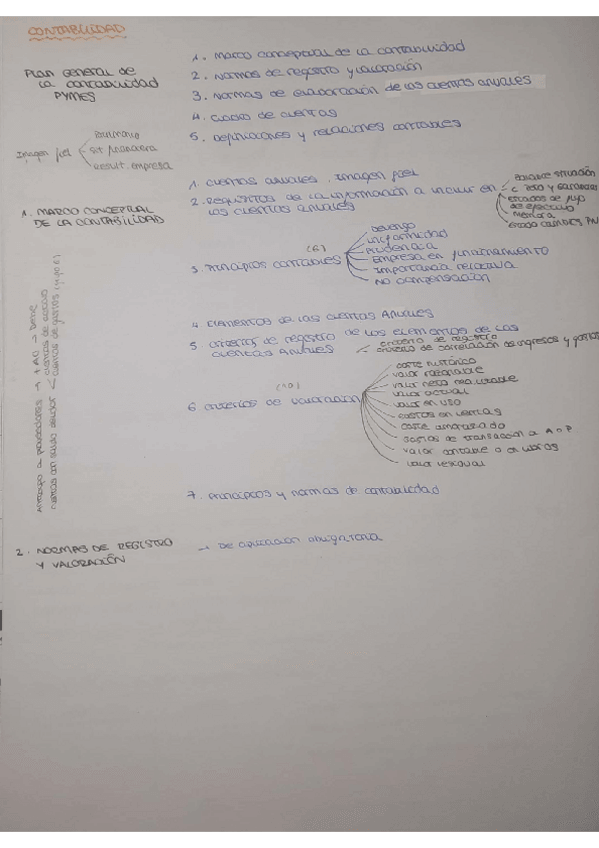 CONTABILIDAD
PLAN GENERAL DE
LA CONTABILIDAD
PYMES
1. MARCO CONCEPTUAL DE LA CONTABILIDAD
2. NORMAS DE REGISTRO Y VALORACIÓN
3. NORMAS DE ELABORACIÓN DE LAS CUENTAS ANUALES
4. CUADRO DE CUENTAS
5. DEFINICIONES Y RELACIONES CONTABLES
Imagen fiel
Patrimonio
Sit financiera
Result. empresa
1. MARCO CONCEPTUAL
DE LA CONTABILIDAD
1. CUENTAS ANUALES. IMAGEN FIEL
2. REQUISITOS DE LA INFORMACIÓN A INCLUIR EN
LAS CUENTAS ANUALES
BALANCE SITUACIÓN
ESTADOS DE FLUJO
DE EFECTIVO
MEMORIA
ESTADO CAMBIOS PN
3. PRINCIPIOS CONTABLES
(6)
DEVENGO
UNIFORMIDAD
PRUDENCIA
EMPRESA EN FUNCIONAMIENTO
IMPORTANCIA RELATIVA
NO COMPENSACIÓN
4. ELEMENTOS DE LAS CUENTAS ANUALES
5 CRITERIOS DE REGISTRO DE LOS ELEMENTOS DE LAS
CUENTAS ANUALES
CRITERIO DE REGISTRO
CRITERIO DE CORRELACIÓN DE INGRESOS Y GASTOS
6 CRITERIOS DE VALORACIÓN
(10)
COSTE HISTÓRICO
VALOR RAZONABLE
VALOR NETO REALIZABLE
VALOR ACTUAL
VALOR EN USO
COSTES EN VENTAS
COSTE AMORTIZADO
COSTES DE TRANSACCIÓN A A O P
VALOR CONTABLE O EN LIBROS
VALOR RESIDUAL
7. PRINCIPIOS Y NORMAS DE CONTABILIDAD
Anticipo a proveedores → +AC → Debe
Cuentas con saldo deudor
cuentas de activo
cuentas de gastos (grupo 6)
2. NORMAS DE REGISTRO
Y VALORACIÓN
→ DE APLICACIÓN OBLIGATORIA